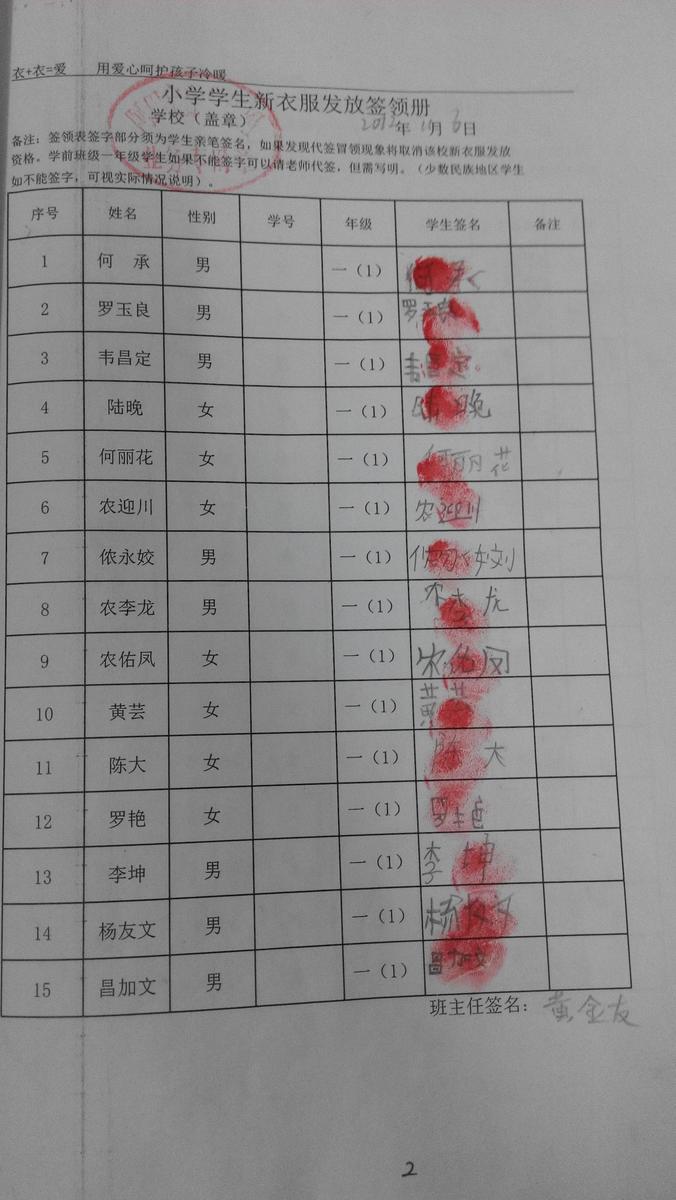 衣+衣=爱 用爱心呵护孩子冷暖
小学学生新衣服发放签领册
学校（盖章） 年 月 日
备注：签领表签字部分须为学生亲笔签名，如果发现代签冒领现象将取消该校新衣服发放
资格。学前班级一年级学生如果不能签字可以请老师代签，但需写明。（少数民族地区学生
如不能签字，可视实际情况说明）。
序号 姓名 性别 学号 年级 学生签名 备注
1 何 承 男 一（1） 何承
2 罗玉良 男 一（1） 罗玉良
3 韦昌定 男 一（1） 韦昌定
4 陆晚 女 一（1） 陆晚
5 何丽花 女 一（1） 何丽花
6 农迎川 女 一（1） 农迎川
7 侬永姣 男 一（1）
8 农李龙 男 一（1） 农李龙
9 农佑凤 女 一（1） 农佑凤
10 黄芸 女 一（1） 黄芸
11 陈大 女 一（1） 陈大
12 罗艳 女 一（1） 罗艳
13 李坤 男 一（1） 李坤
14 杨友文 男 一（1） 杨友文
15 昌加文 男 一（1） 昌加文
班主任签名： 黄金友
2